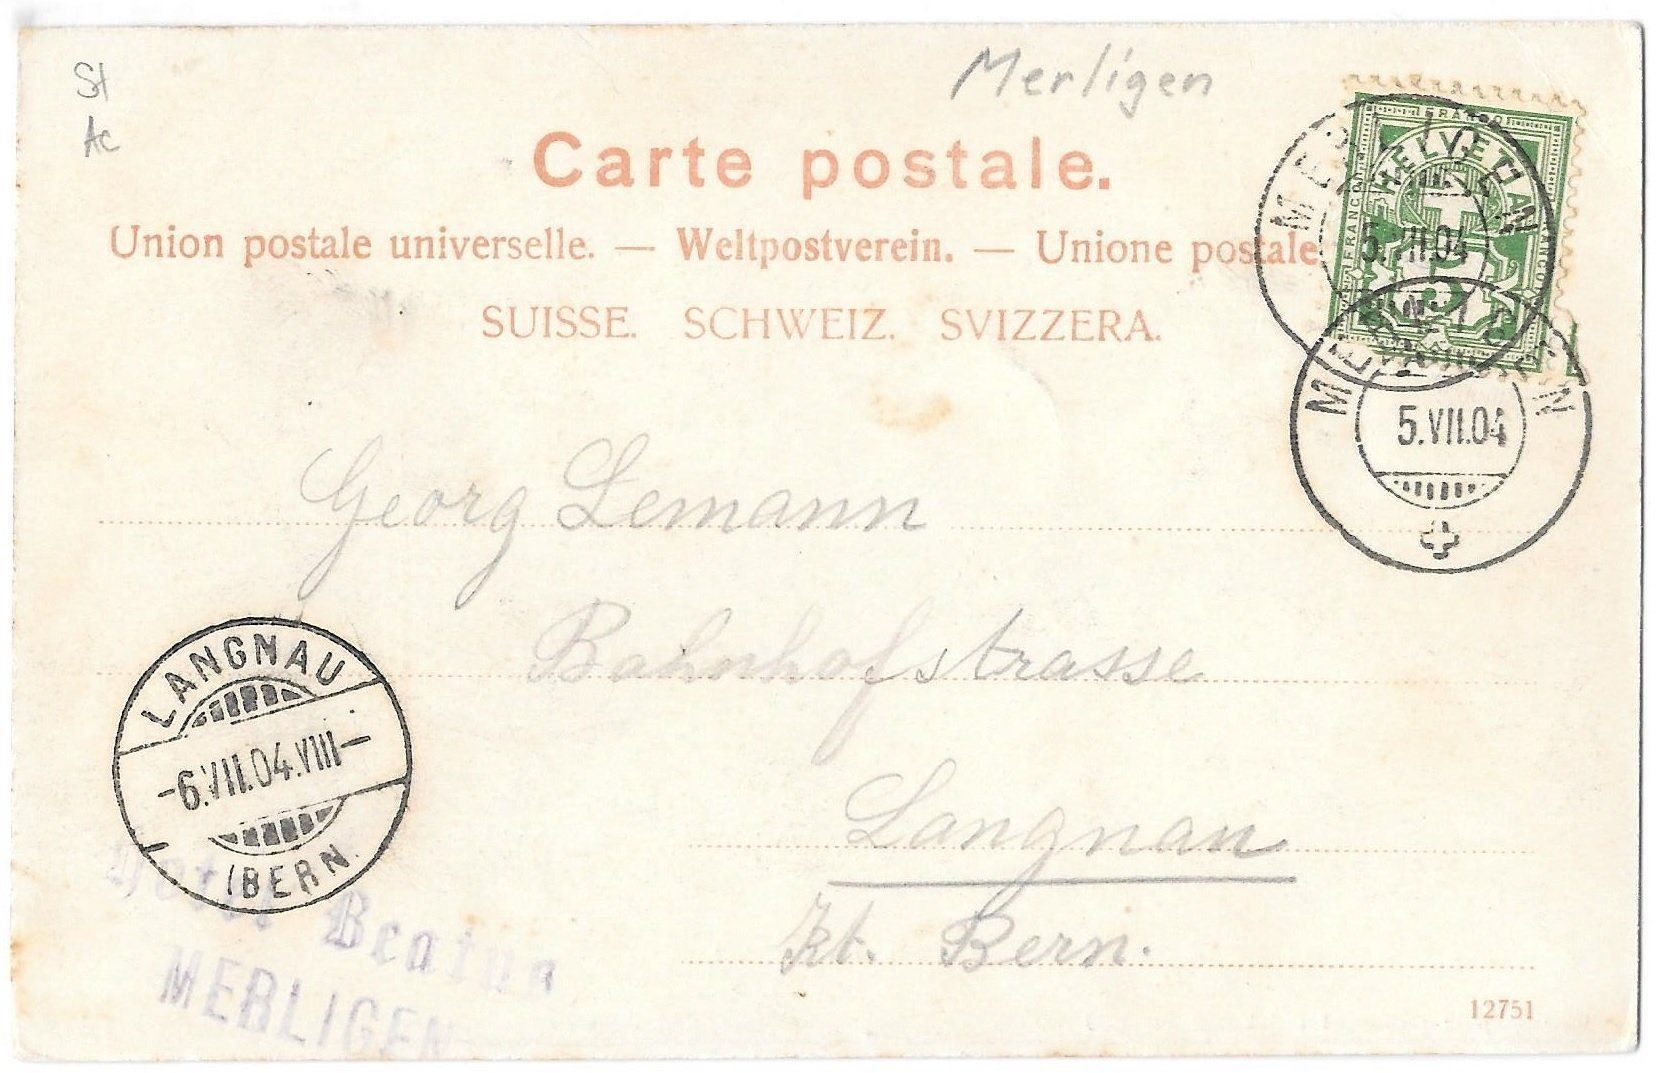 St
Ac
Merligen
Carte postale.
Union postale universelle. — Weltpostverein. — Unione postale
SUISSE. SCHWEIZ. SVIZZERA.
FRANCO
HELVETIA
MERLIGEN
5.VII.04
MERLIGEN
5.VII.04
Georg Lemann
Bahnhofstrasse
Langnau
Kt. Bern.
LANGNAU
-6.VII.04.VIII-
(BERN
Hotel Beatus
MERLIGEN
12751